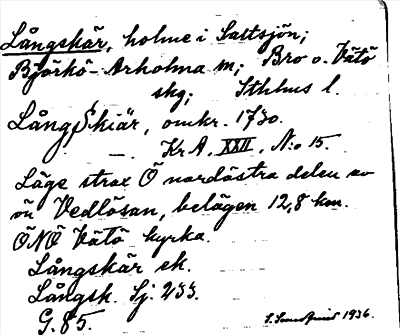 Långskär, holme i Saltsjön;
Björkö-Arholma sn; Bro o. Vätö
skg; Sthlms l.
Lång Skiär, omkr. 1730.
Kr A, XXII, N:o 15.
Läge strax Ö nordöstra delen av
ön Vedlösan, belägen 12,8 km.
ÖNÖ Vätö kyrka.
Långskär ek.
Långsk. Sj. 233.
G. 85. 1936.